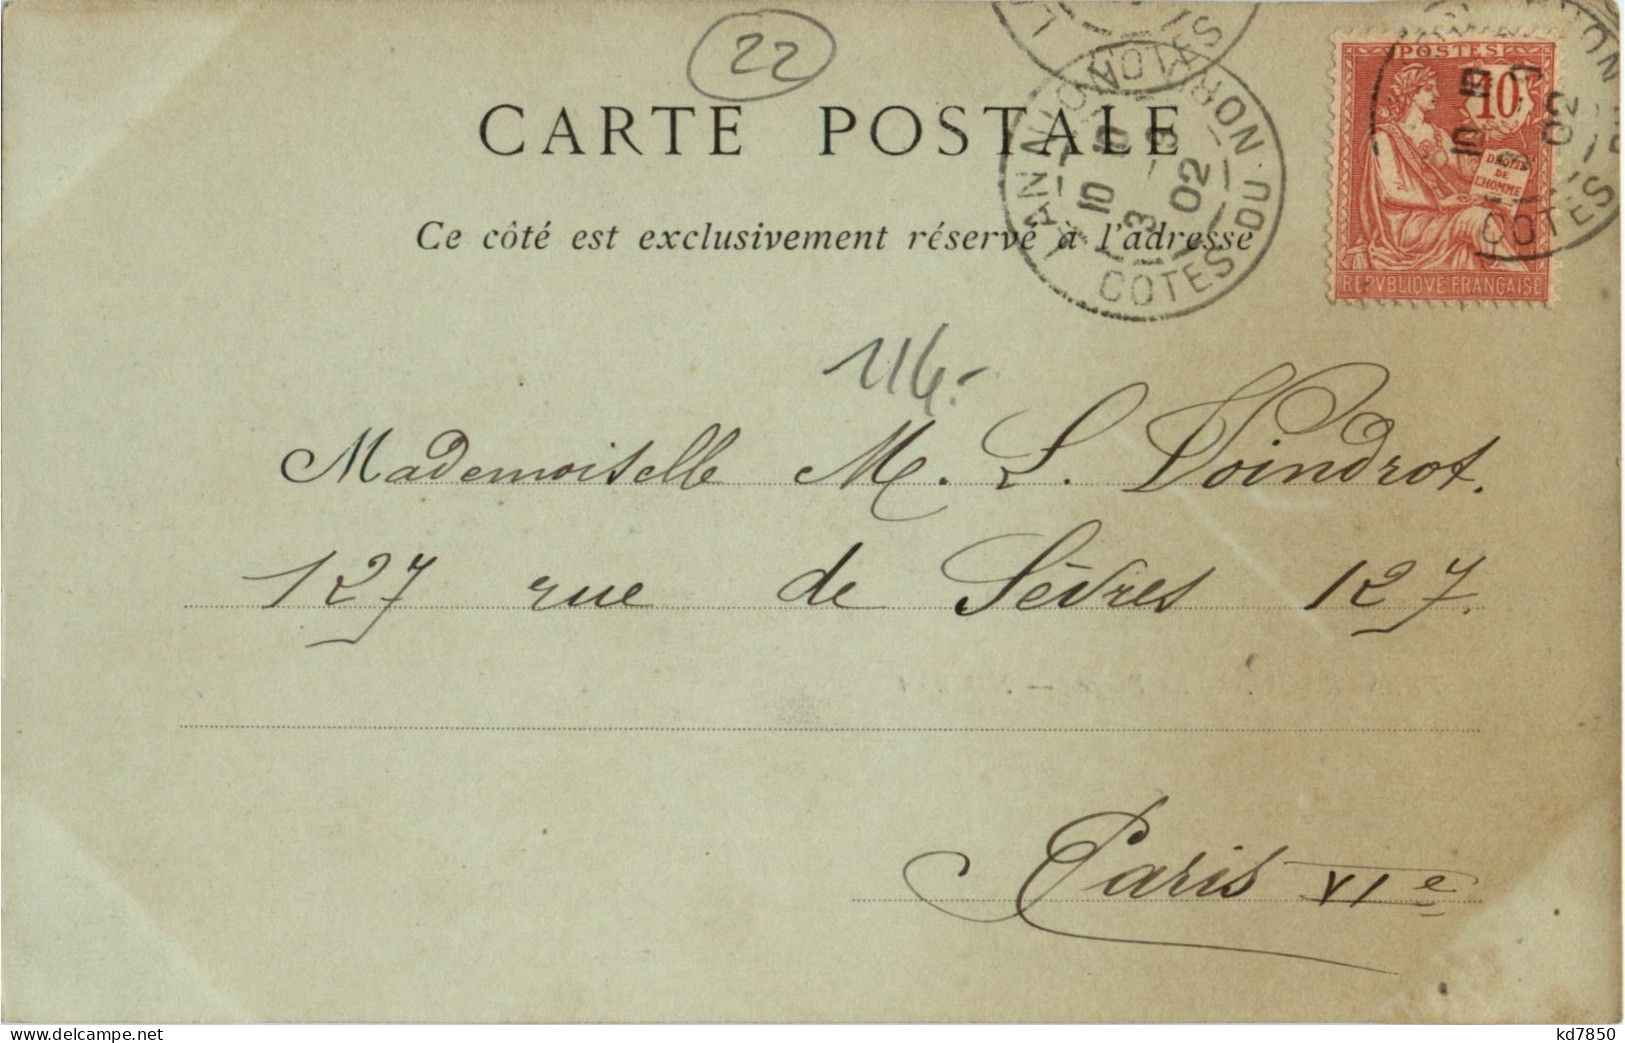 22
CARTE POSTALE
Ce côté est exclusivement réservé à l'adresse
LANNION
10 10
3 -3
02
COTES-DU-NORD
POSTES
10
DROITS
DE
L'HOMME
REPVBLIQVE FRANÇAISE
COTES
Mademoiselle M. L. Voindrot.
127 rue de Sèvres 127.
Paris VIe
delcampe.net
kd7850